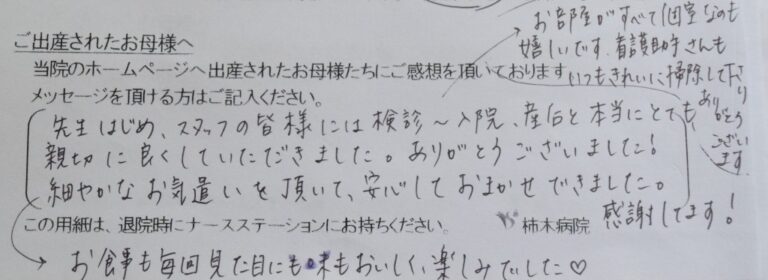 ご出産されたお母様へ
当院のホームページへ出産されたお母様たちにご感想を頂いております
メッセージを頂ける方はご記入ください。
先生はじめ、スタッフの皆様には検診～入院、産后と本当にとても
親切に良くしていただきました。ありがとうございました!
細やかなお気遣いを頂いて、安心しておまかせできました。
感謝してます!
お部屋がすべて個室なのも
嬉しいです。看護助手さんも
いつもきれいに掃除して下さり
ありがとう
ございます
この用紙は、退院時にナースステーションにお持ちください。
柿木病院
お食事も毎回見た目にも味もおいしく、楽しみでした♡